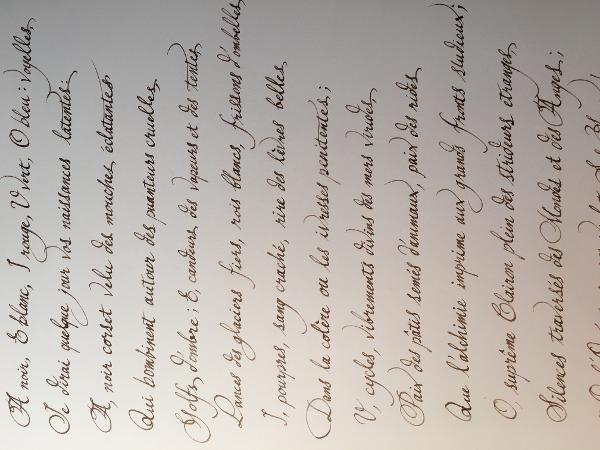 A noir, E blanc, I rouge, U vert, O bleu: voyelles,
Je dirai quelque jour vos naissances latentes:
A, noir corset velu des mouches éclatantes
Qui bombinent autour des puanteurs cruelles,
Golfes d'ombre; E, candeurs des vapeurs et des tentes,
Lances des glaciers fiers, rois blancs, frissons d'ombelles,
I, pourpres, sang craché, rire des lèvres belles
Dans la colère ou les ivresses pénitentes;
U, cycles, vibrements divins des mers virides,
Paix des pâtis semés d'animaux, paix des rides
Que l'alchimie imprime aux grands fronts studieux;
O, suprême Clairon plein des strideurs étranges,
Silences traversés des Mondes et des Anges;